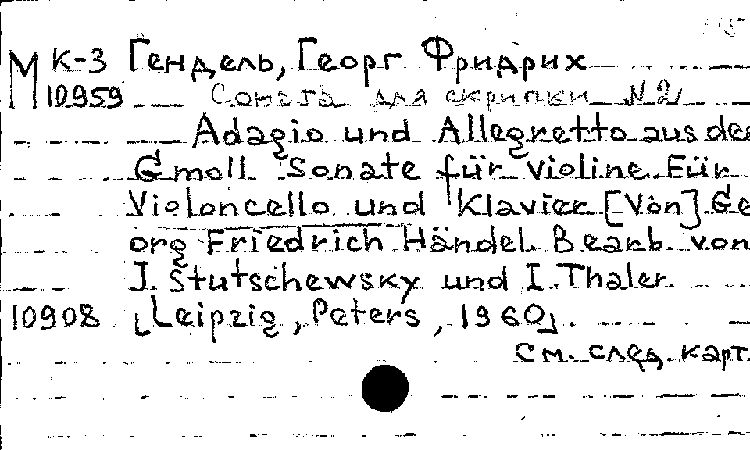 М К-3 Гендель, Георг Фридрих
10959 Соната для скрипки N 2
Adagio und Allegretto aus der
G moll Sonate für Violine. Für
Violoncello und Klavier [Von] Ge
org Friedrich Händel. Bearb. von
J. Stutschewsky und I. Thaler.
10908 [Leipzig, Peters, 1960].
См. след. карт.